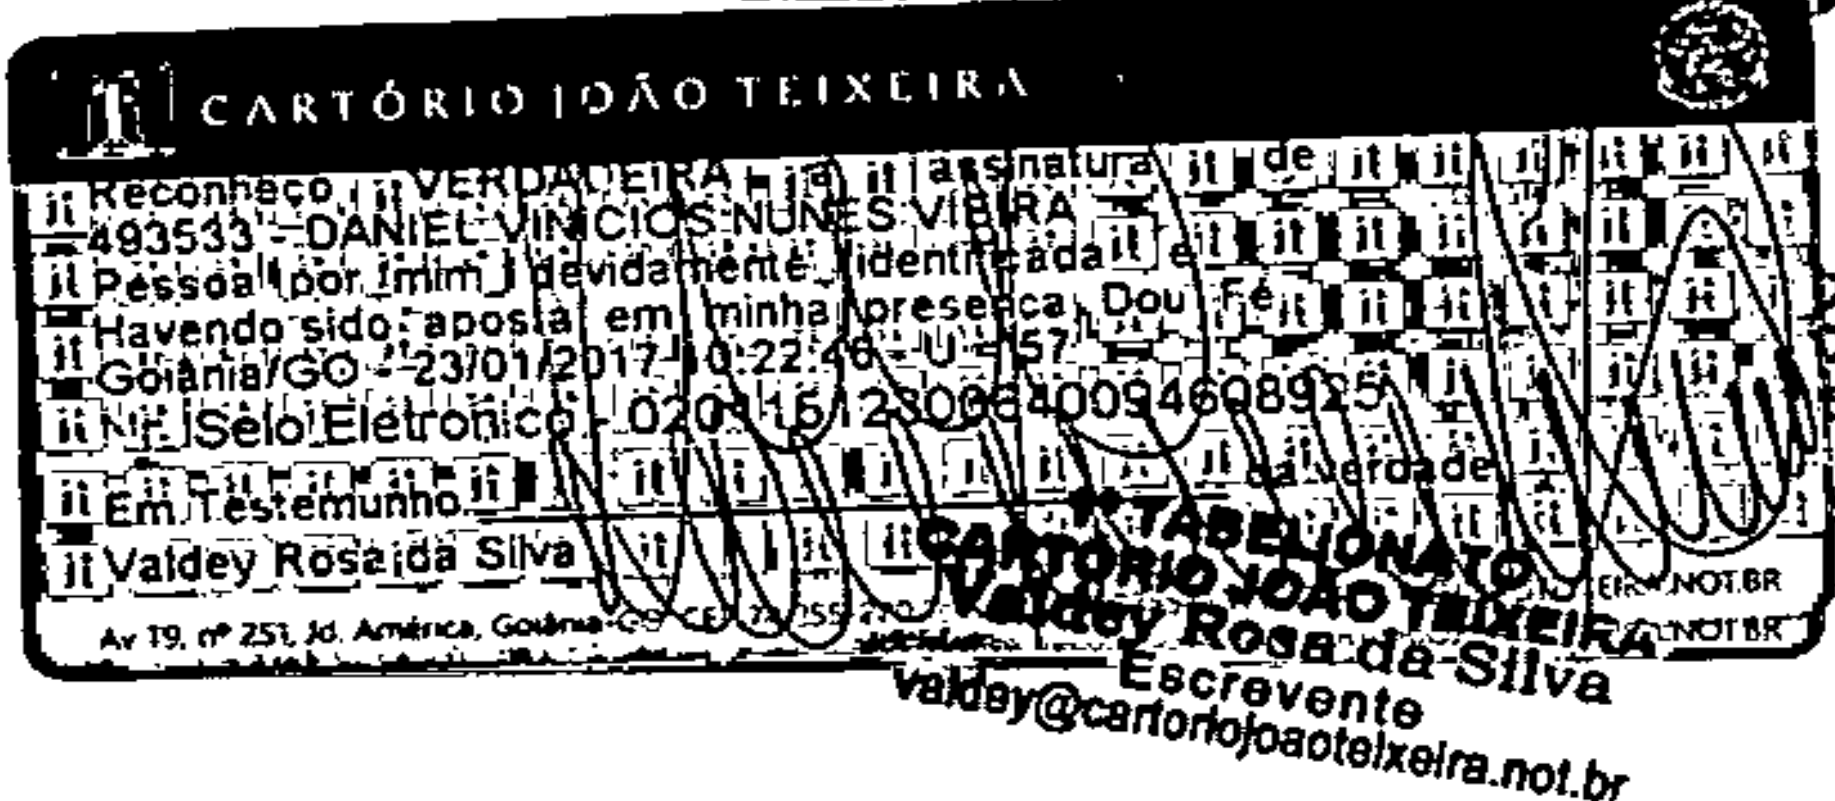 CARTÓRIO JOÃO TEIXEIRA
Reconheço VERDADEIRA a assinatura de
493533 - DANIEL VINICIOS NUNES VIEIRA
Pessoa por mim devidamente identificada e
Havendo sido aposta em minha presença, Dou Fé
Goiânia/GO - 23/01/2017 10:22:46 - U - 57
Nº Selo Eletronico - 02011612300640094608925
Em Testemunho da verdade
Valdey Rosa da Silva
Av T9, nº 251, Jd. América, Goiânia-GO
.NOT.BR
.NOT.BR
1º TABELIONATO
CARTÓRIO JOÃO TEIXEIRA
Valdey Rosa da Silva
Escrevente
valdey@cartoriojoaoteixeira.not.br